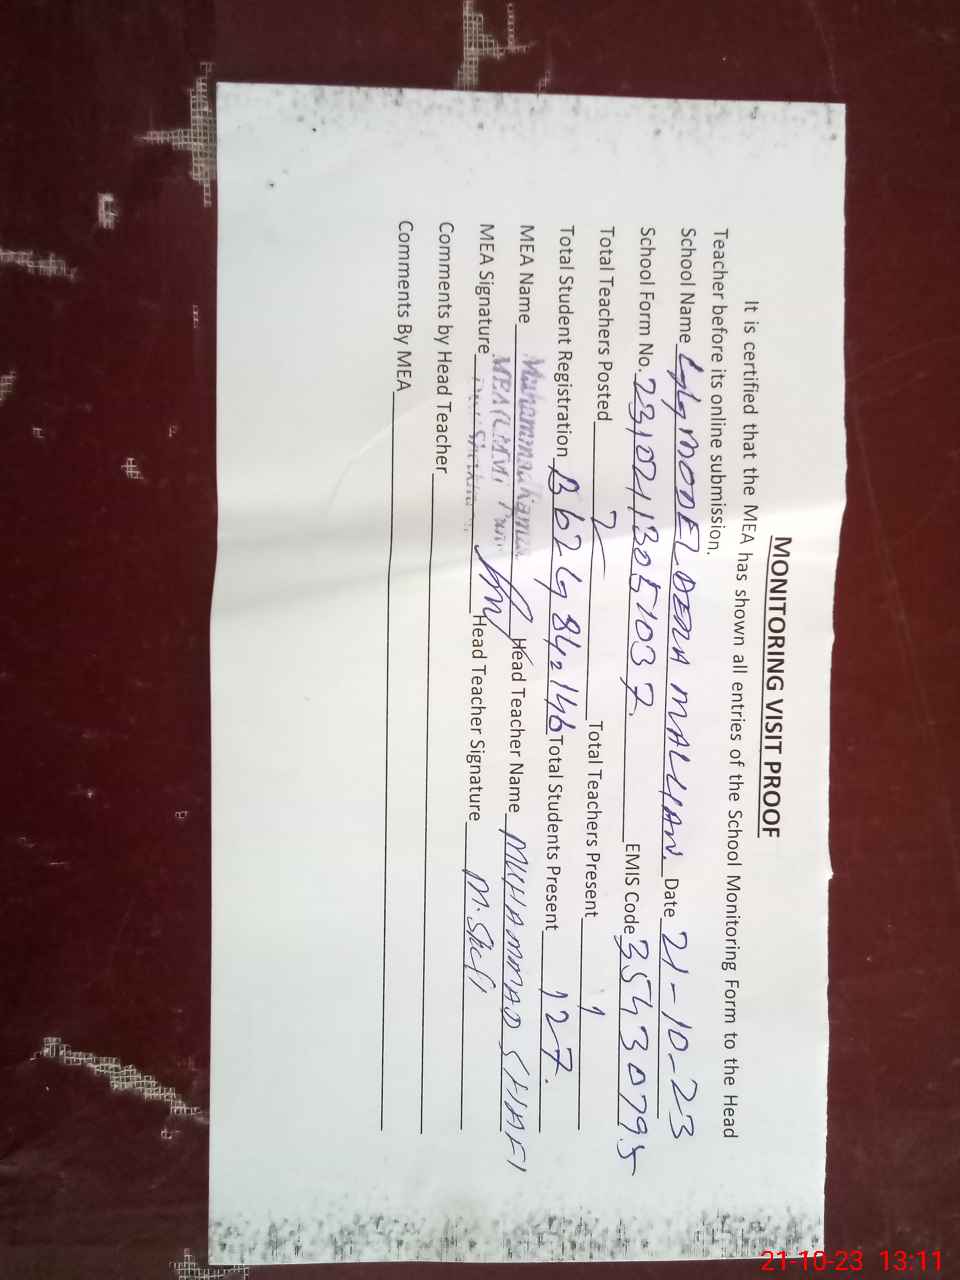 MONITORING VISIT PROOF
It is certified that the MEA has shown all entries of the School Monitoring Form to the Head
Teacher before its online submission.
School Name MODEL DERA MALLIAN. Date 21-10-23
School Form No. 2310213051037. EMIS Code 35430795
Total Teachers Posted 2 Total Teachers Present 1
Total Student Registration B 62 G 84 = 146 Total Students Present 127.
MEA Name Muhammad Head Teacher Name MUHAMMAD SHAFI
MEA Signature Head Teacher Signature M. Shafi
Comments by Head Teacher
Comments By MEA
21-10-23 13:11